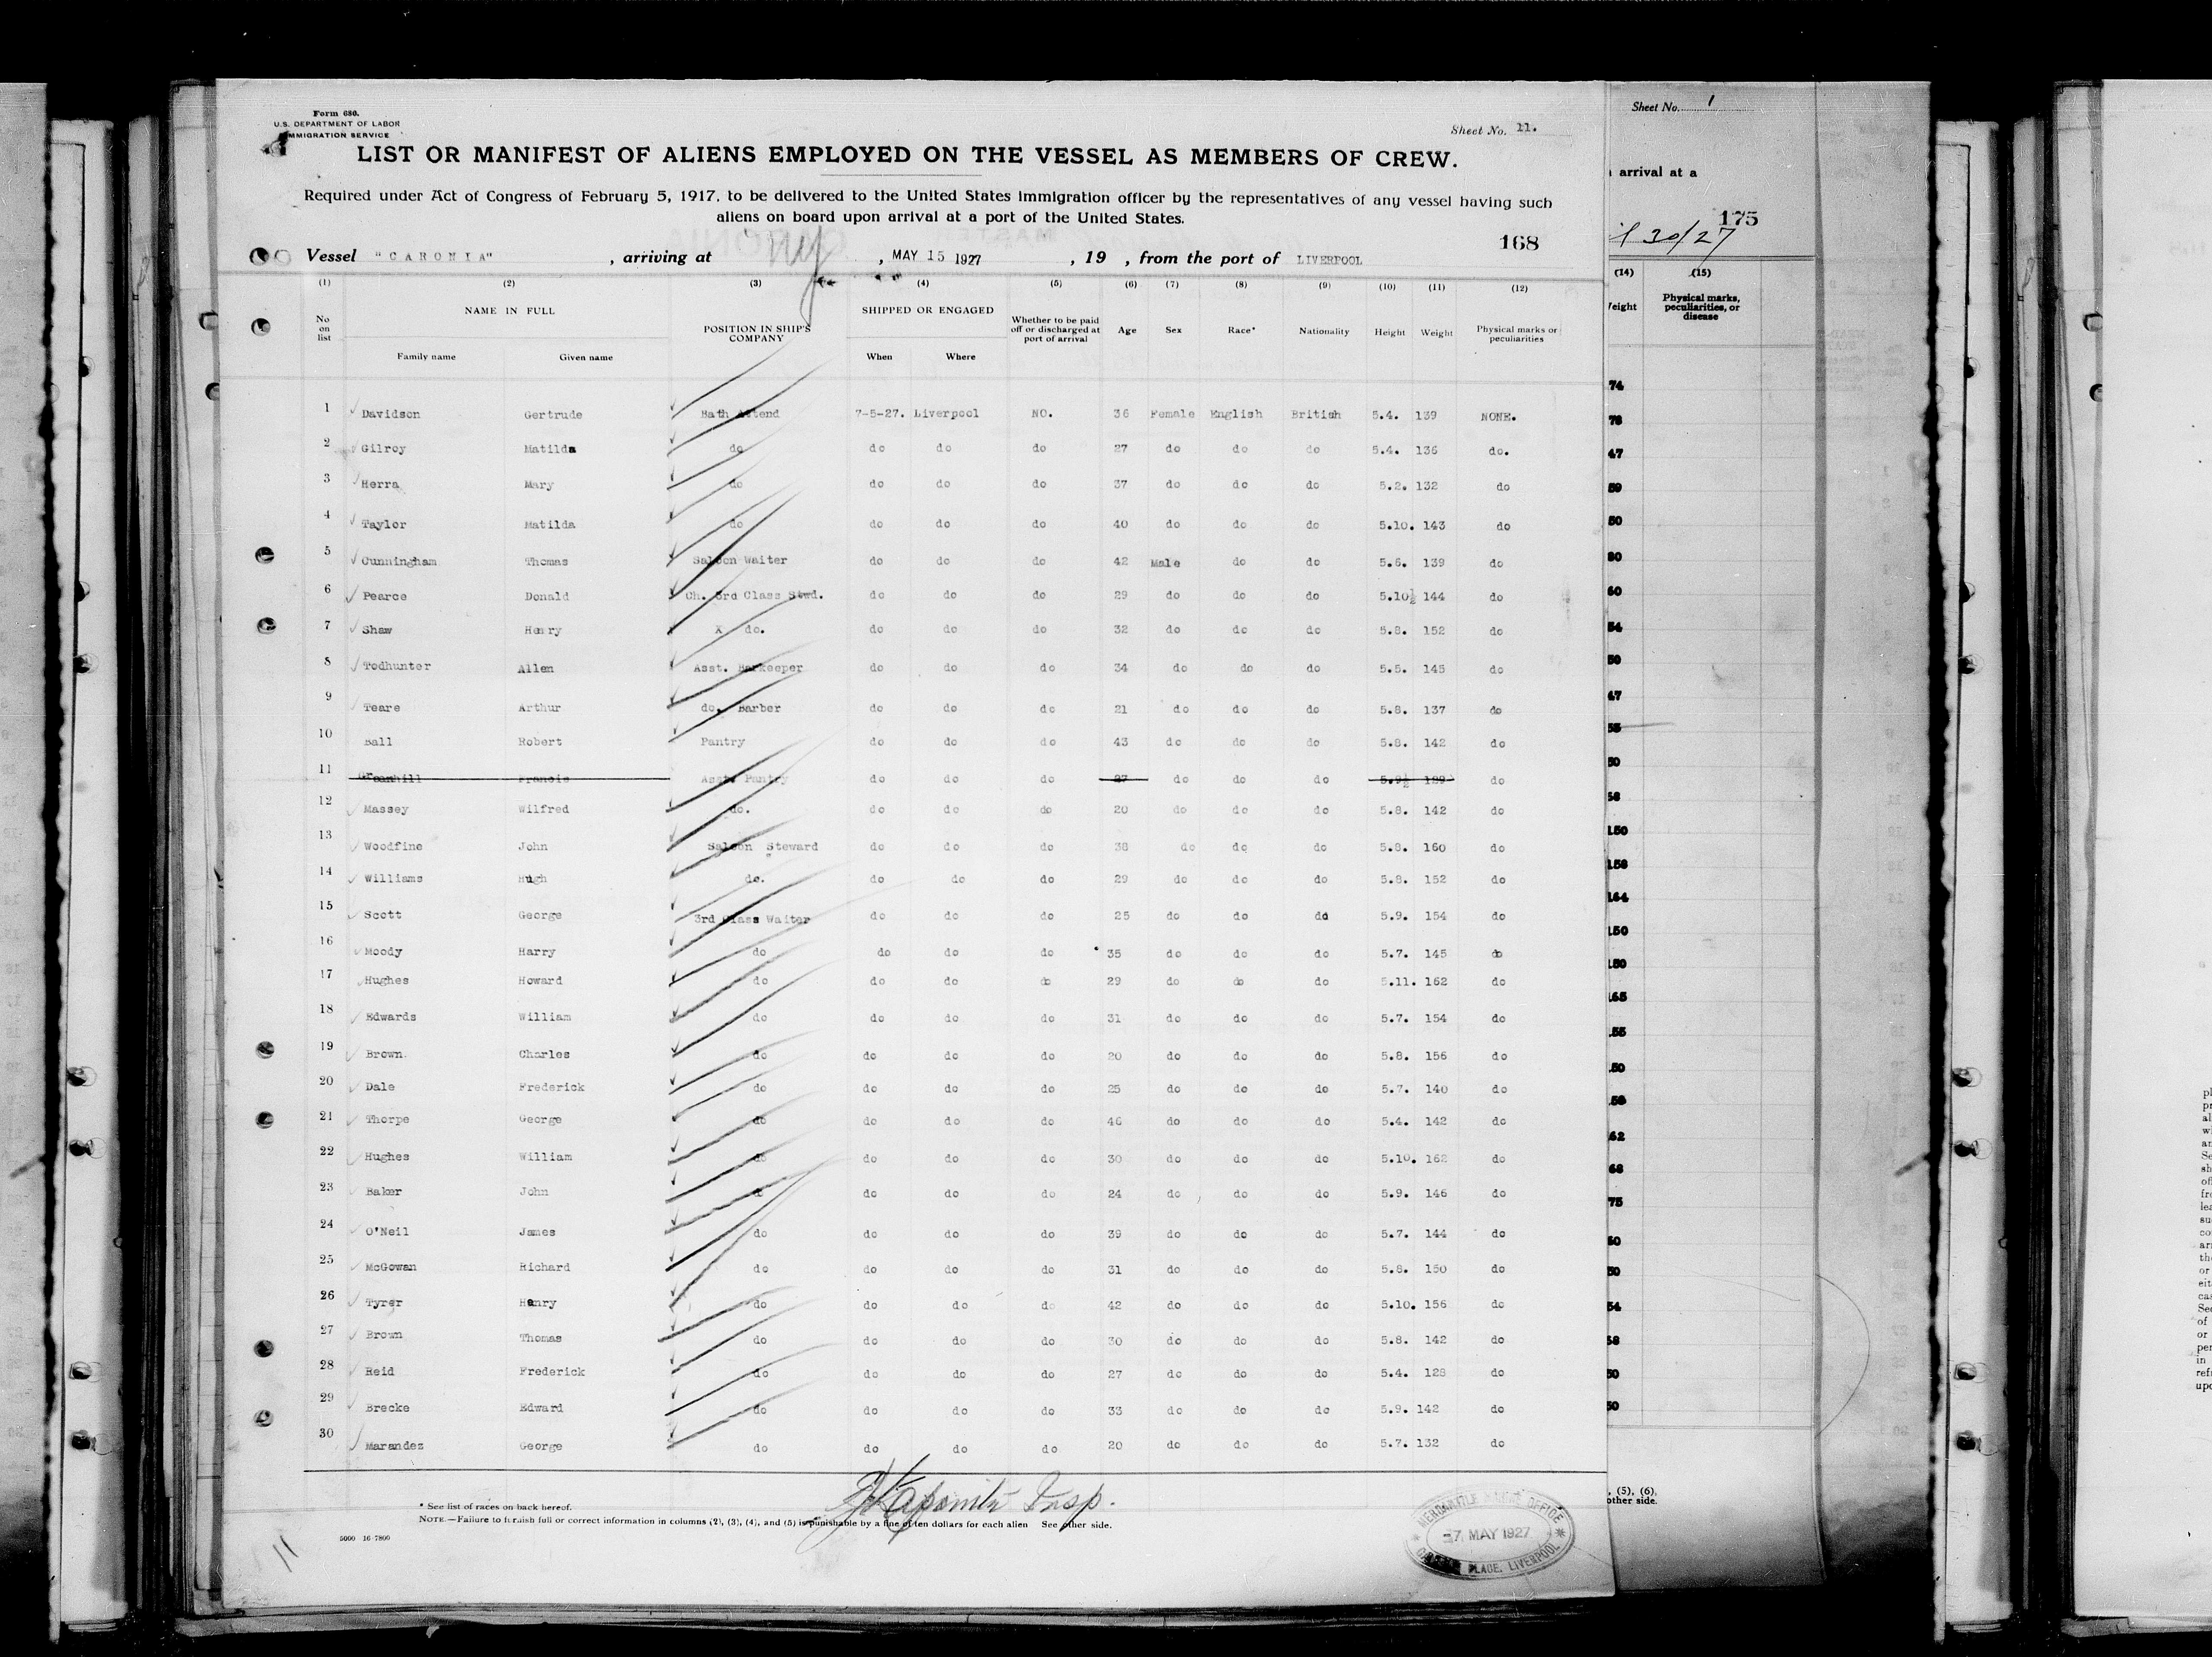 Form 680.
U.S. DEPARTMENT OF LABOR
IMMIGRATION SERVICE
Sheet No. 11.
LIST OR MANIFEST OF ALIENS EMPLOYED ON THE VESSEL AS MEMBERS OF CREW.
Required under Act of Congress of February 5, 1917, to be delivered to the United States immigration officer by the representatives of any vessel having such
aliens on board upon arrival at a port of the United States.
168
Vessel "CARONIA" , arriving at NY , MAY 15 1927 , 19 , from the port of LIVERPOOL
(1) (2) (3) (4) (5) (6) (7) (8) (9) (10) (11) (12)
No on list NAME IN FULL Family name Given name POSITION IN SHIP'S COMPANY SHIPPED OR ENGAGED When Where Whether to be paid off or discharged at port of arrival Age Sex Race* Nationality Height Weight Physical marks or peculiarities
1 Davidson Gertrude Bath Attend 7-5-27. Liverpool NO. 36 Female English British 5.4. 139 NONE.
2 Gilroy Matilda do do do do 27 do do do 5.4. 136 do.
3 Herra Mary do do do do 37 do do do 5.2. 132 do
4 Taylor Matilda do do do do 40 do do do 5.10. 143 do
5 Cunningham Thomas Saloon Waiter do do do 42 Male do do 5.6. 139 do
6 Pearce Donald Ch. 3rd Class Stwd. do do do 29 do do do 5.10½ 144 do
7 Shaw Henry X do. do do do 32 do do do 5.8. 152 do
8 Todhunter Allen Asst. Barkeeper do do do 34 do do do 5.5. 145 do
9 Teare Arthur do. Barber do do do 21 do do do 5.8. 137 do
10 Ball Robert Pantry do do do 43 do do do 5.8. 142 do
11 Greenhill Francis Asst. Pantry do do do 27 do do do 5.9½ 139 do
12 Massey Wilfred do. do do do 20 do do do 5.8. 142 do
13 Woodfine John Saloon Steward do do do 38 do do do 5.8. 160 do
14 Williams Hugh do. do do do 29 do do do 5.8. 152 do
15 Scott George 3rd Class Waiter do do do 25 do do do 5.9. 154 do
16 Moody Harry do do do do 35 do do do 5.7. 145 do
17 Hughes Howard do do do do 29 do do do 5.11. 162 do
18 Edwards William do do do do 31 do do do 5.7. 154 do
19 Brown. Charles do do do do 20 do do do 5.8. 156 do
20 Dale Frederick do do do do 25 do do do 5.7. 140 do
21 Thorpe George do do do do 46 do do do 5.4. 142 do
22 Hughes William do do do do 30 do do do 5.10. 162 do
23 Baker John do do do do 24 do do do 5.9. 146 do
24 O'Neil James do do do do 39 do do do 5.7. 144 do
25 McGowan Richard do do do do 31 do do do 5.8. 150 do
26 Tyrer Henry do do do do 42 do do do 5.10. 156 do
27 Brown Thomas do do do do 30 do do do 5.8. 142 do
28 Reid Frederick do do do do 27 do do do 5.4. 128 do
29 Brecke Edward do do do do 33 do do do 5.9. 142 do
30 Marandez George do do do do 20 do do do 5.7. 132 do
Insp.
* See list of races on back hereof.
NOTE.—Failure to furnish full or correct information in columns (2), (3), (4), and (5) is punishable by a fine of ten dollars for each alien See other side.
5000 16-7800
11
MERCANTILE MARINE OFFICE
-7 MAY 1927
PLACE, LIVERPOOL
Sheet No. 1
arrival at a
175
30/27
(14) (15)
Physical marks, peculiarities, or disease
, (5), (6).
other side.